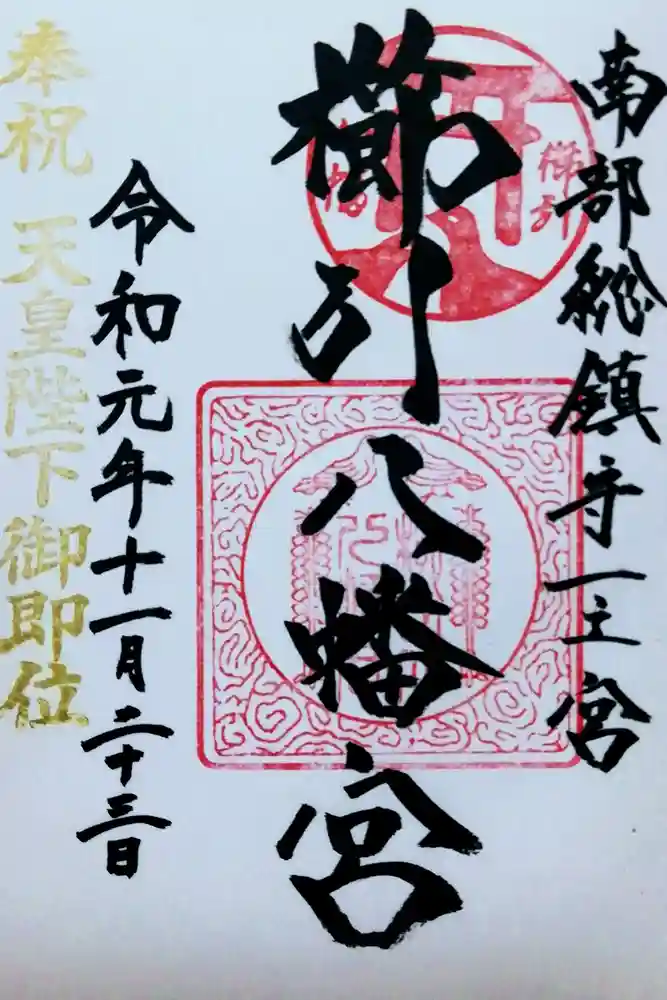 南部総鎮守一之宮
櫛引八幡宮
令和元年十一月二十三日
奉祝 天皇陛下御即位
櫛引
八幡